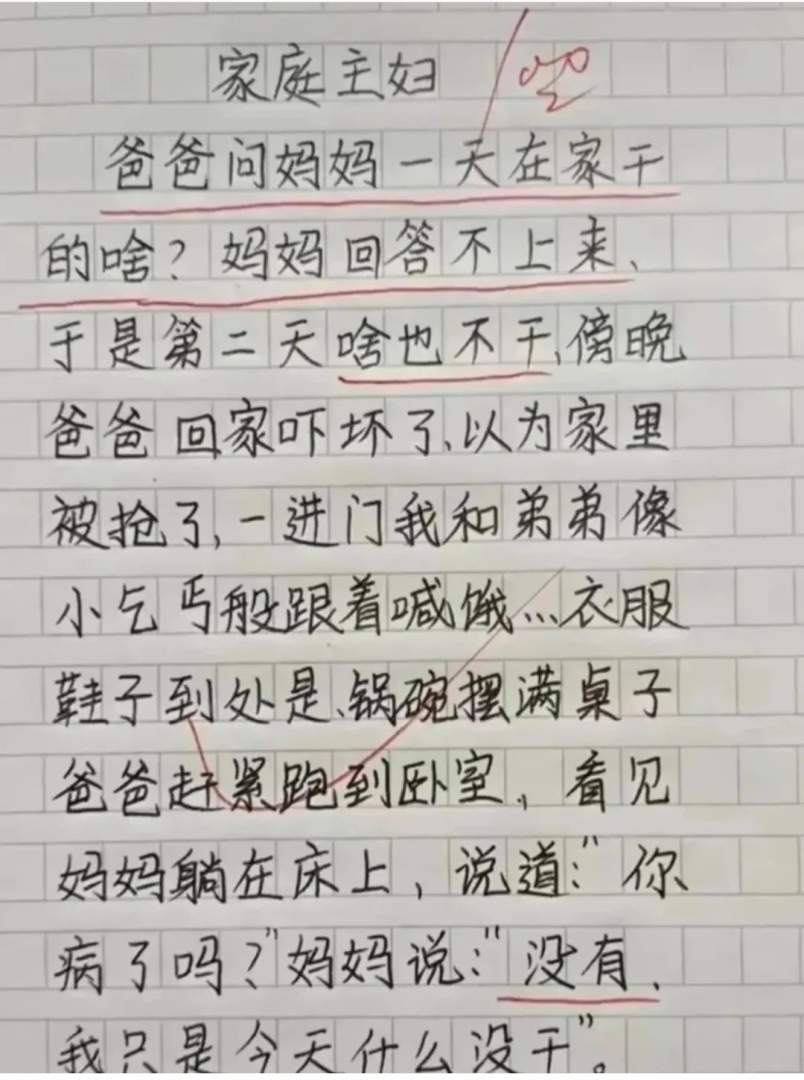 家庭主妇
爸爸问妈妈一天在家干
的啥?妈妈回答不上来、
于是第二天啥也不干、傍晚
爸爸回家吓坏了、以为家里
被抢了,一进门我和弟弟像
小乞丐般跟着喊饿…衣服
鞋子到处是、锅碗摆满桌子
爸爸赶紧跑到卧室,看见
妈妈躺在床上,说道:"你
病了吗?"妈妈说:"没有、
我只是今天什么没干"。